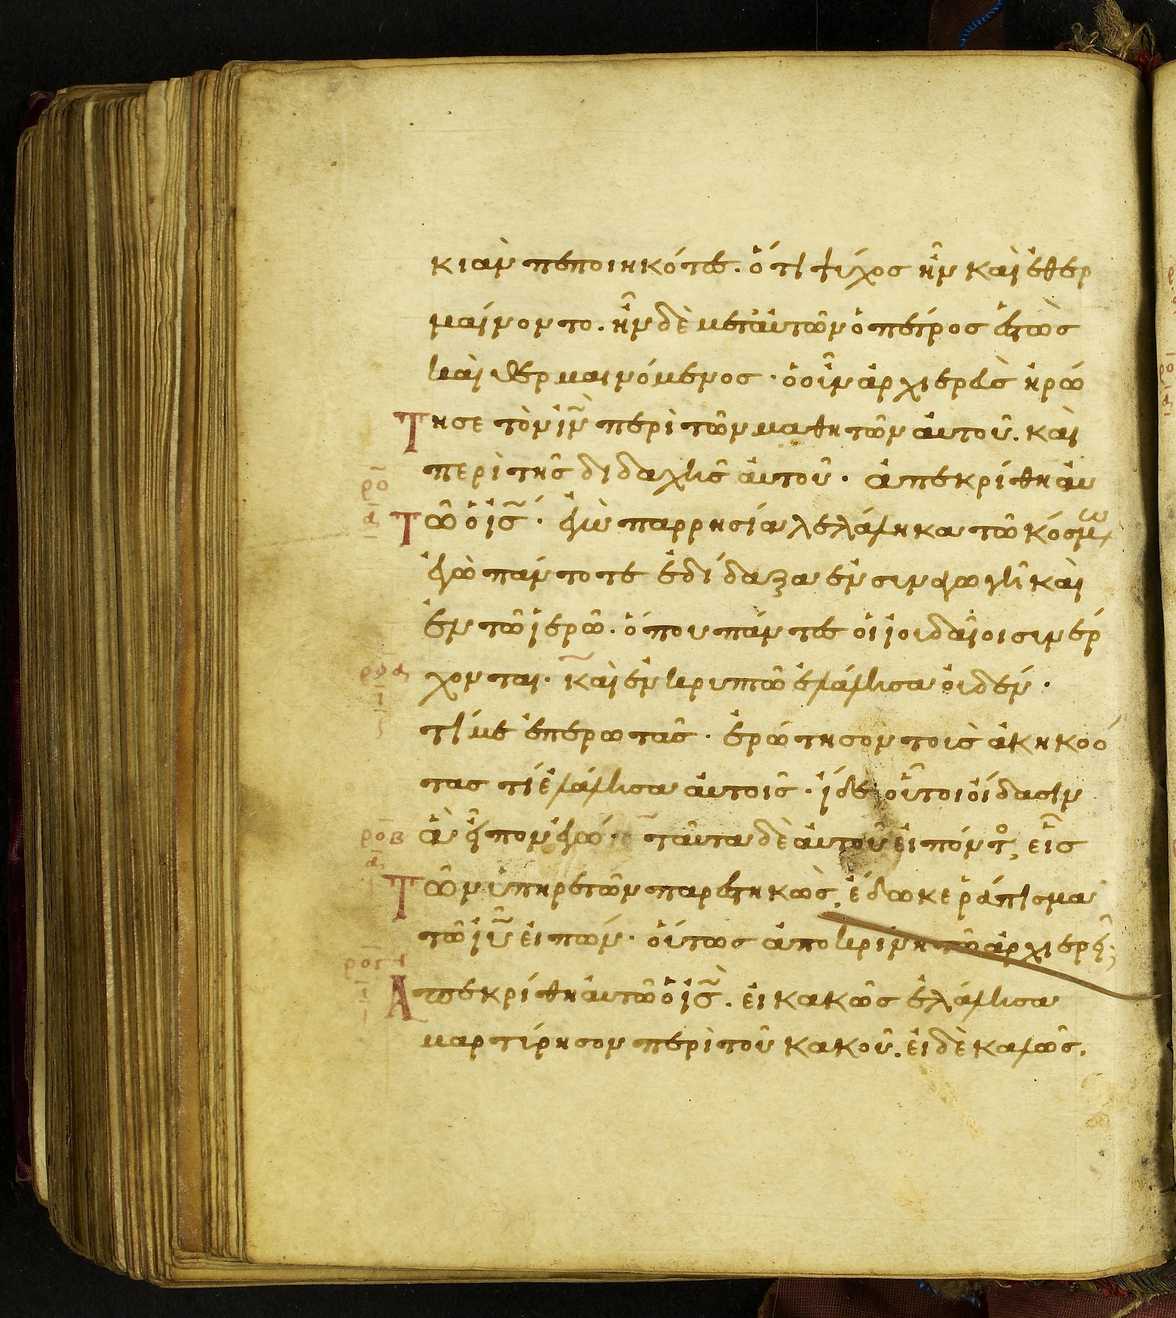 κιὰν πεποιηκότες. ὅτι ψύχος ἦν καὶ ἐθερ
μαίνοντο. ἦν δὲ μετ' ἀυτῶν ὁ πέτρος ἑστὼς
καὶ θερμαινόμενος · ὁ οὖν ἀρχιερεὺς ἠρώ
Τησε τὸν ἰν̅ περὶ τῶν μαθητῶν ἀυτοῦ. καὶ
περὶ τῆς διδαχῆς ἀυτοῦ · ἀπεκρίθη ἀυ
ρο̅
α̅
Τῶ ὁ ἰς̅ · ἐγὼ παρρησία λελάληκα τῶ κόσμω
ἐγὼ πάντοτε ἐδίδαξα ἐν συναγωγῆ καὶ
ἐν τῶ ἱερῶ. ὅπου πάντες οἱ ἰουδαῖοι συνέρ
ροα
ι̅
χονται. καὶ ἐν κρυπτῶ ἐλάλησα ὀυδέν ·
τί με ἐπερωτᾶς · ἐρώτησον τοὺς ἀκηκοό
τας τί ἐλάλησα ἀυτοῖς · ἴδε οὗτοι ὀίδασιν
ρο̅β
α̅
ἃ εἶπον ἐγώ · ταῦτα δὲ ἀυτοῦ ἐιπόντο, εἷς
Τῶν ὑπηρετῶν παρεστηκὼς, ἔδωκε ῥάπισμα
τῶ ἰυ̅ ἐιπών · ὅυτως ἀποκρίνη τῶ ἀρχιερεῖ;
ρο̅γ
ι̅
Ἀπεκρίθη ἀυτῶ ὁ ἰς̅. ἐι κακῶς ἐλάλησα
μαρτύρησον περὶ τοῦ κακοῦ. ἐι δὲ καλῶς.